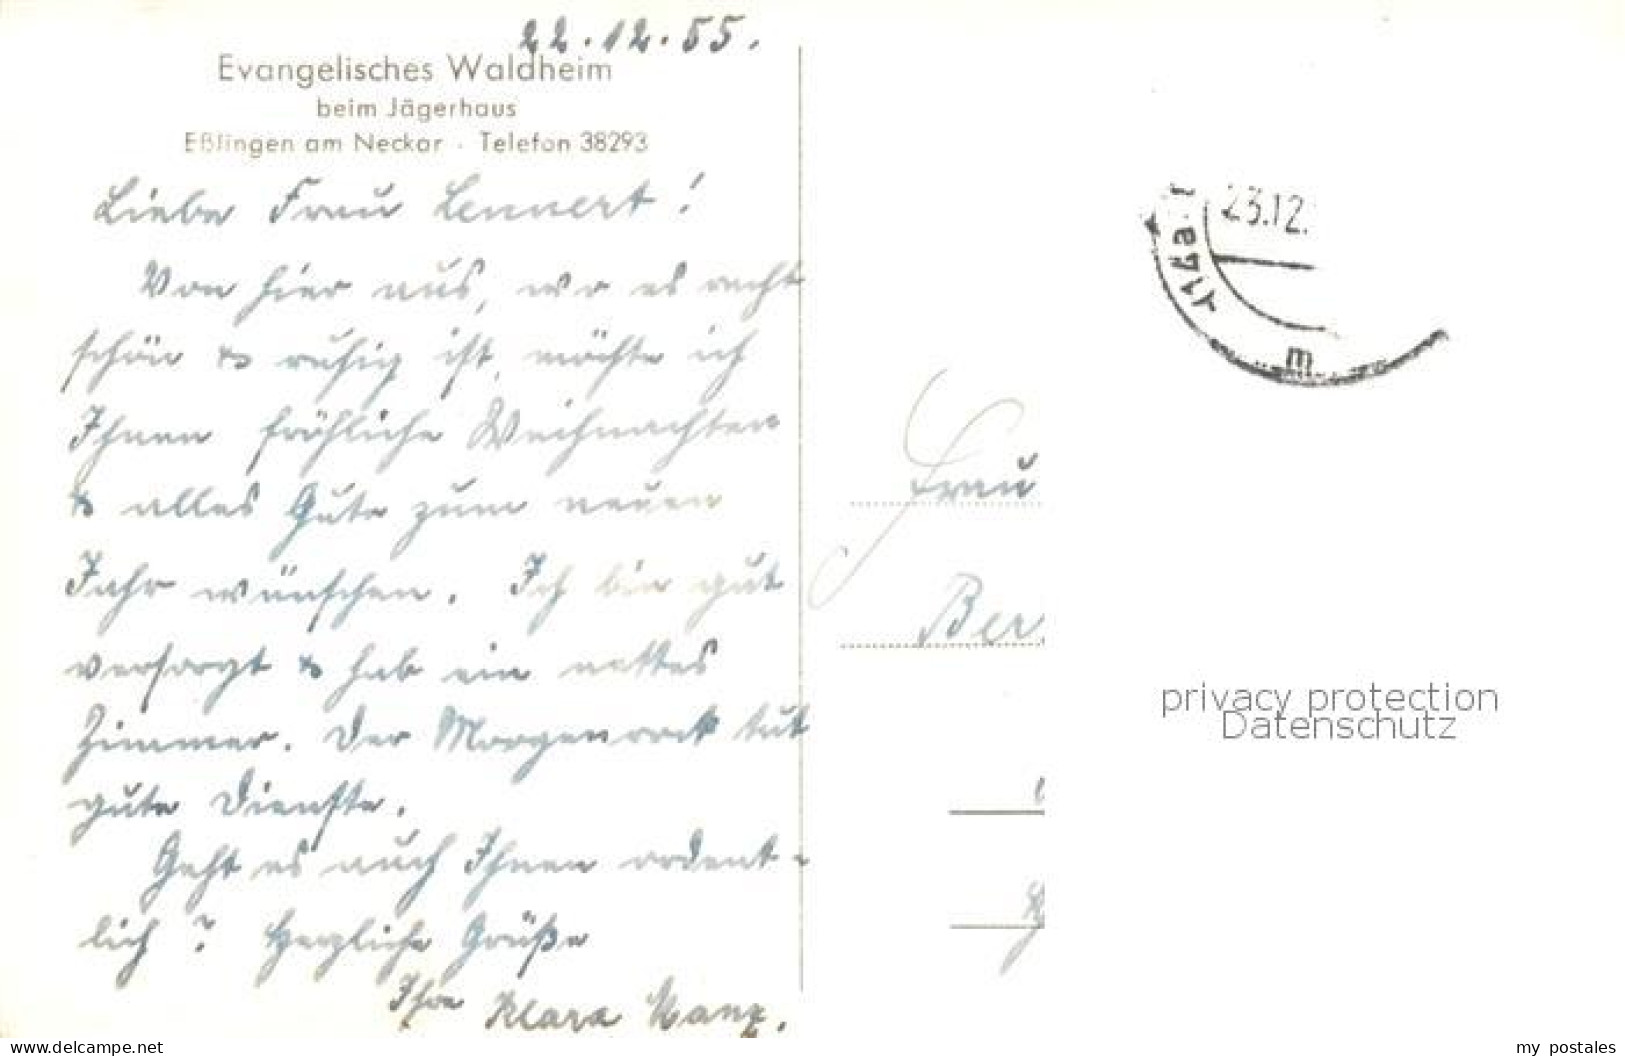 22.12.55.
Evangelisches Waldheim
beim Jägerhaus
Eßlingen am Neckar · Telefon 38293
Liebe Frau Lennert!
Von hier aus, wo es recht
schön & ruhig ist, möchte ich
Ihnen fröhliche Weihnachten
& alles Gute zum neuen
Jahr wünschen. Ich bin gut
versorgt & hab ein nettes
Zimmer. Der Morgenrock tut
gute Dienste.
Geht es auch Ihnen ordent-
lich? Herzliche Grüße
Ihre Klara Manz.
23.12.
(14a)
m
Frau
Ber
privacy protection
Datenschutz
www.delcampe.net
my_postales